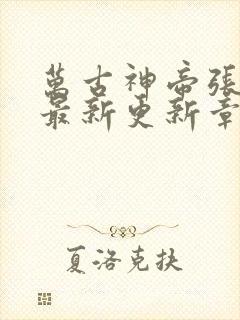 萬古神帝張
最新更新章
夏洛克扶